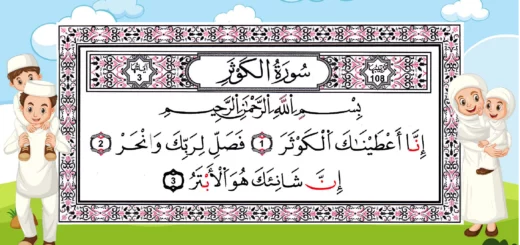 سُورَةُ الْكَوْثَرِ
108
3
بِسْمِ اللَّهِ الرَّحْمَٰنِ الرَّحِيمِ
إِنَّا أَعْطَيْنَـٰكَ الْكَوْثَرَ 1 فَصَلِّ لِرَبِّكَ وَانْحَرْ 2
إِنَّ شَانِئَكَ هُوَ الْأَبْتَرُ 3